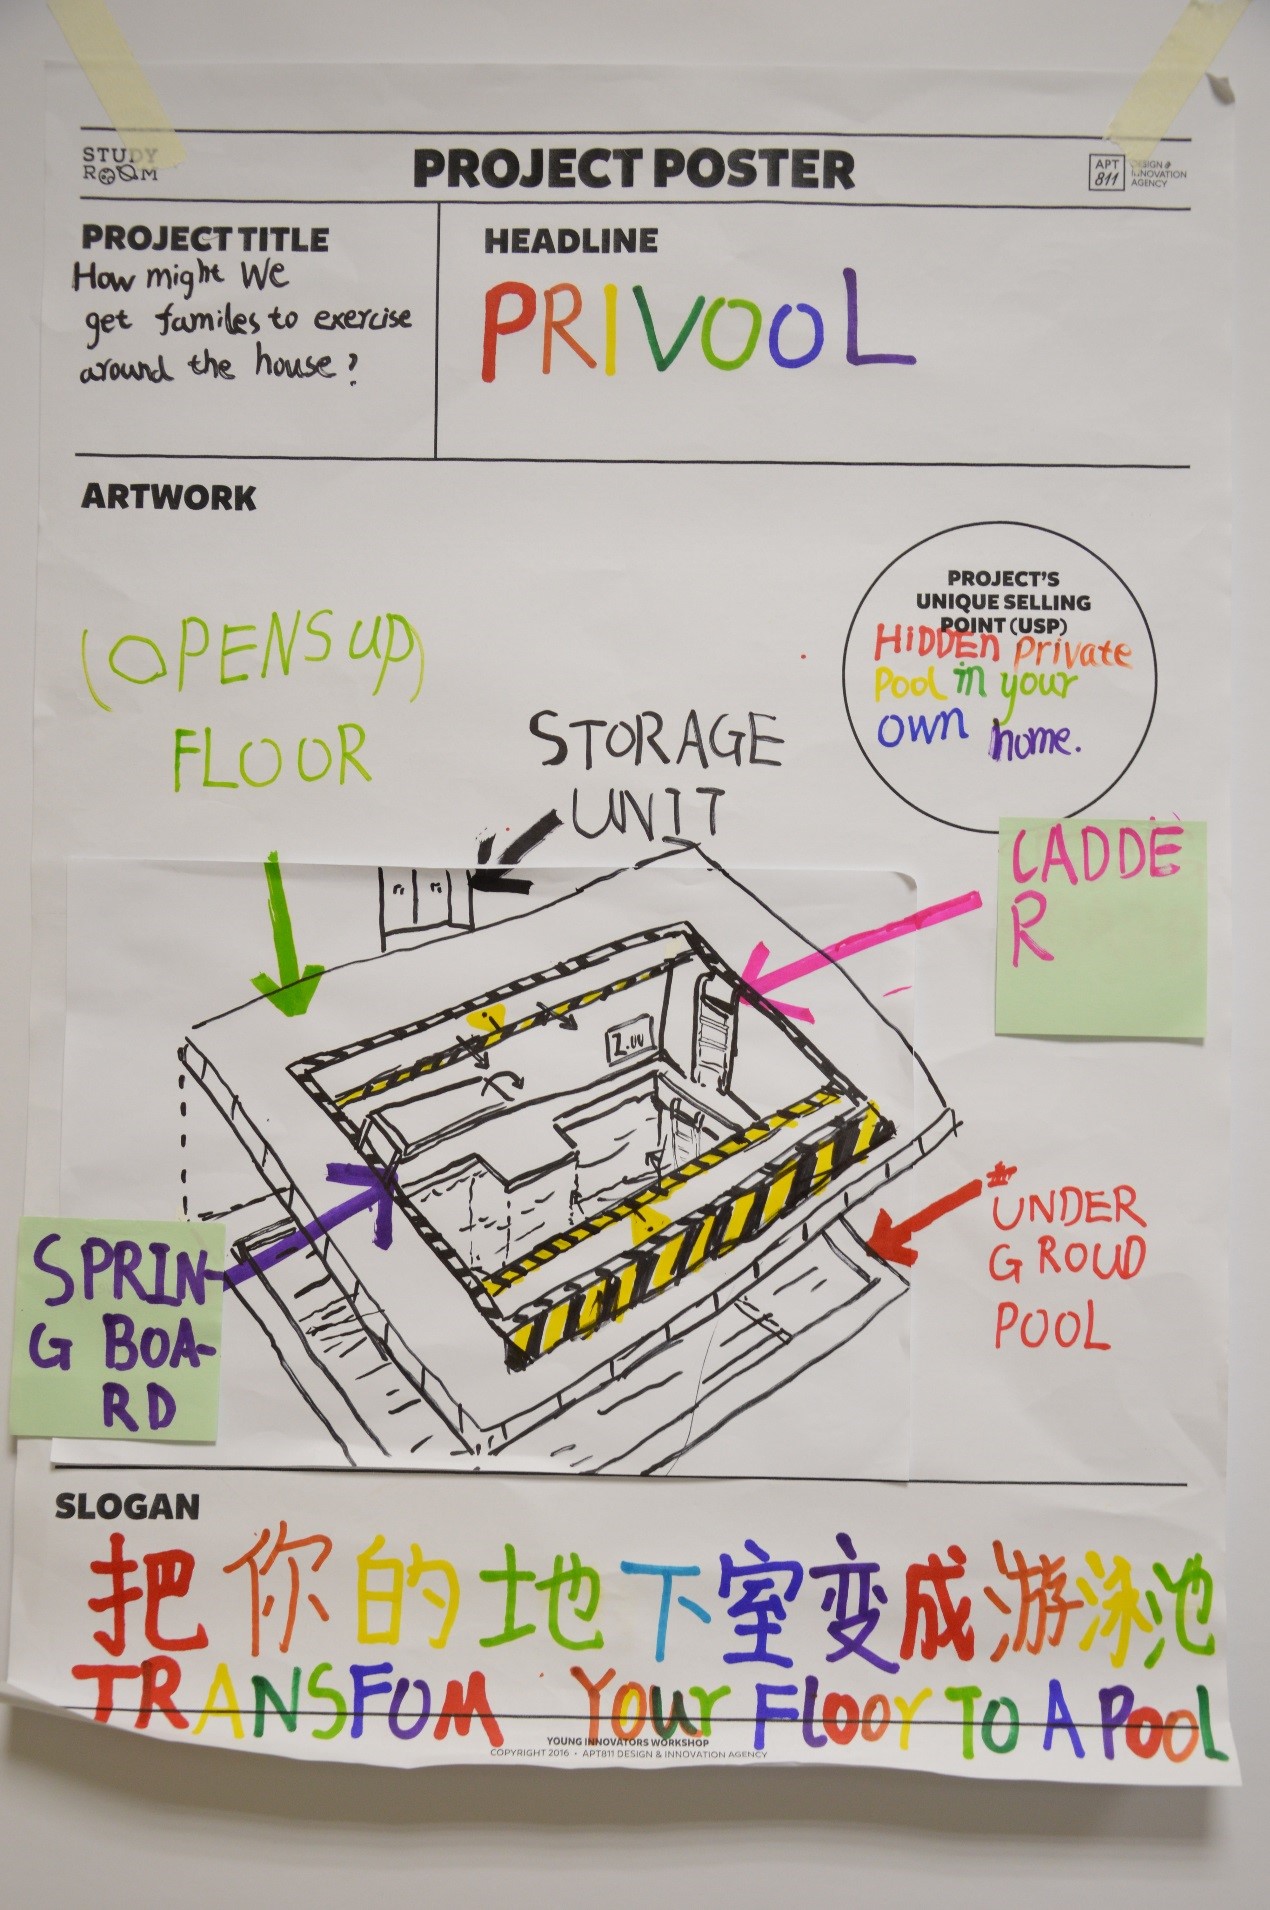 STUDY
ROOM
PROJECT POSTER
APT
811
DESIGN &
INNOVATION
AGENCY
PROJECT TITLE
How might We
get familes to exercise
around the house?
HEADLINE
PRIVOOL
ARTWORK
PROJECT'S
UNIQUE SELLING
POINT (USP)
HiDDEn private
Pool in your
own home.
(OPENS UP)
FLOOR
STORAGE
UNIT
LADDE
R
SPRIN-
G BOA-
RD
UNDER
GROUD
POOL
SLOGAN
把你的地下室变成游泳池
TRANSFOM Your Floor TO A Pool
YOUNG INNOVATORS WORKSHOP
COPYRIGHT 2016 • APT811 DESIGN & INNOVATION AGENCY